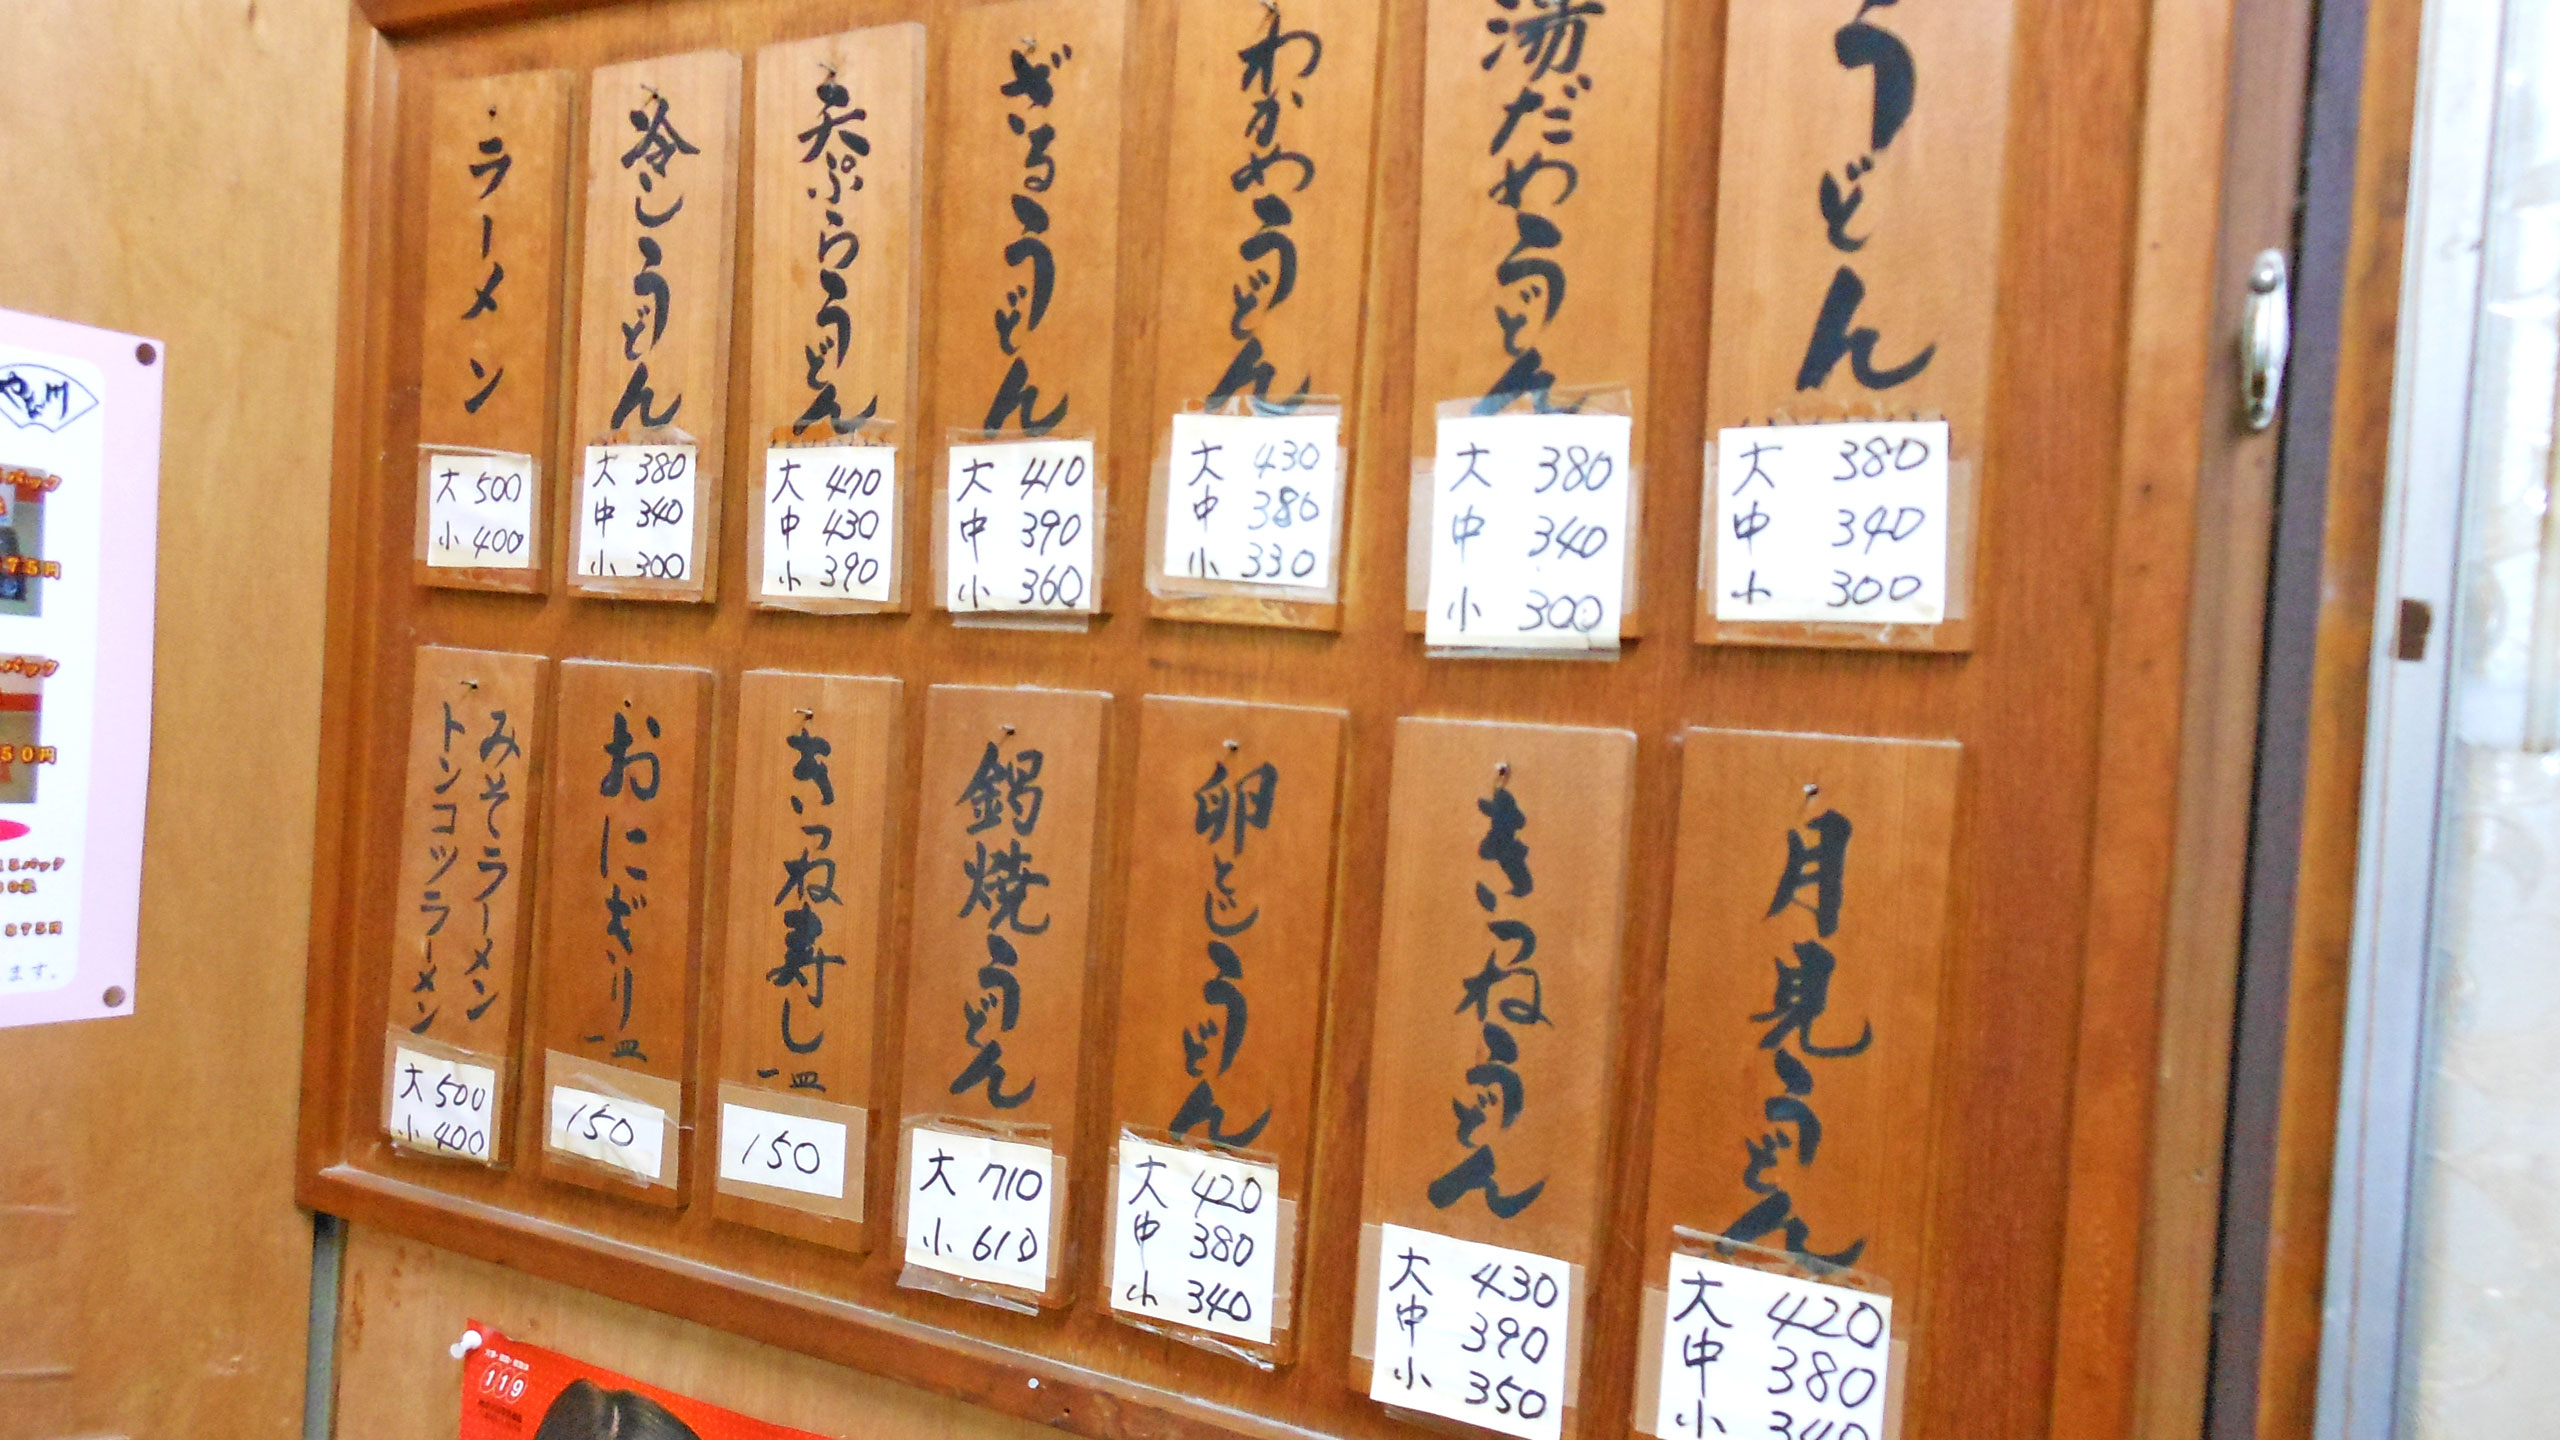 うどん
大 380
中 340
小 300
湯だめうどん
大 380
中 340
小 300
わかめうどん
大 430
中 380
小 330
ざるうどん
大 410
中 390
小 360
天ぷらうどん
大 470
中 430
小 390
冷しうどん
大 380
中 340
小 300
ラーメン
大 500
小 400
月見うどん
大 420
中 380
小 340
きつねうどん
大 430
中 390
小 350
卵とじうどん
大 420
中 380
小 340
鍋焼うどん
大 710
小 610
きつね寿し
一皿
150
おにぎり
一皿
150
みそラーメン
トンコツラーメン
大 500
小 400
パック
75円
パック
50円
パック
875円
ます。
119